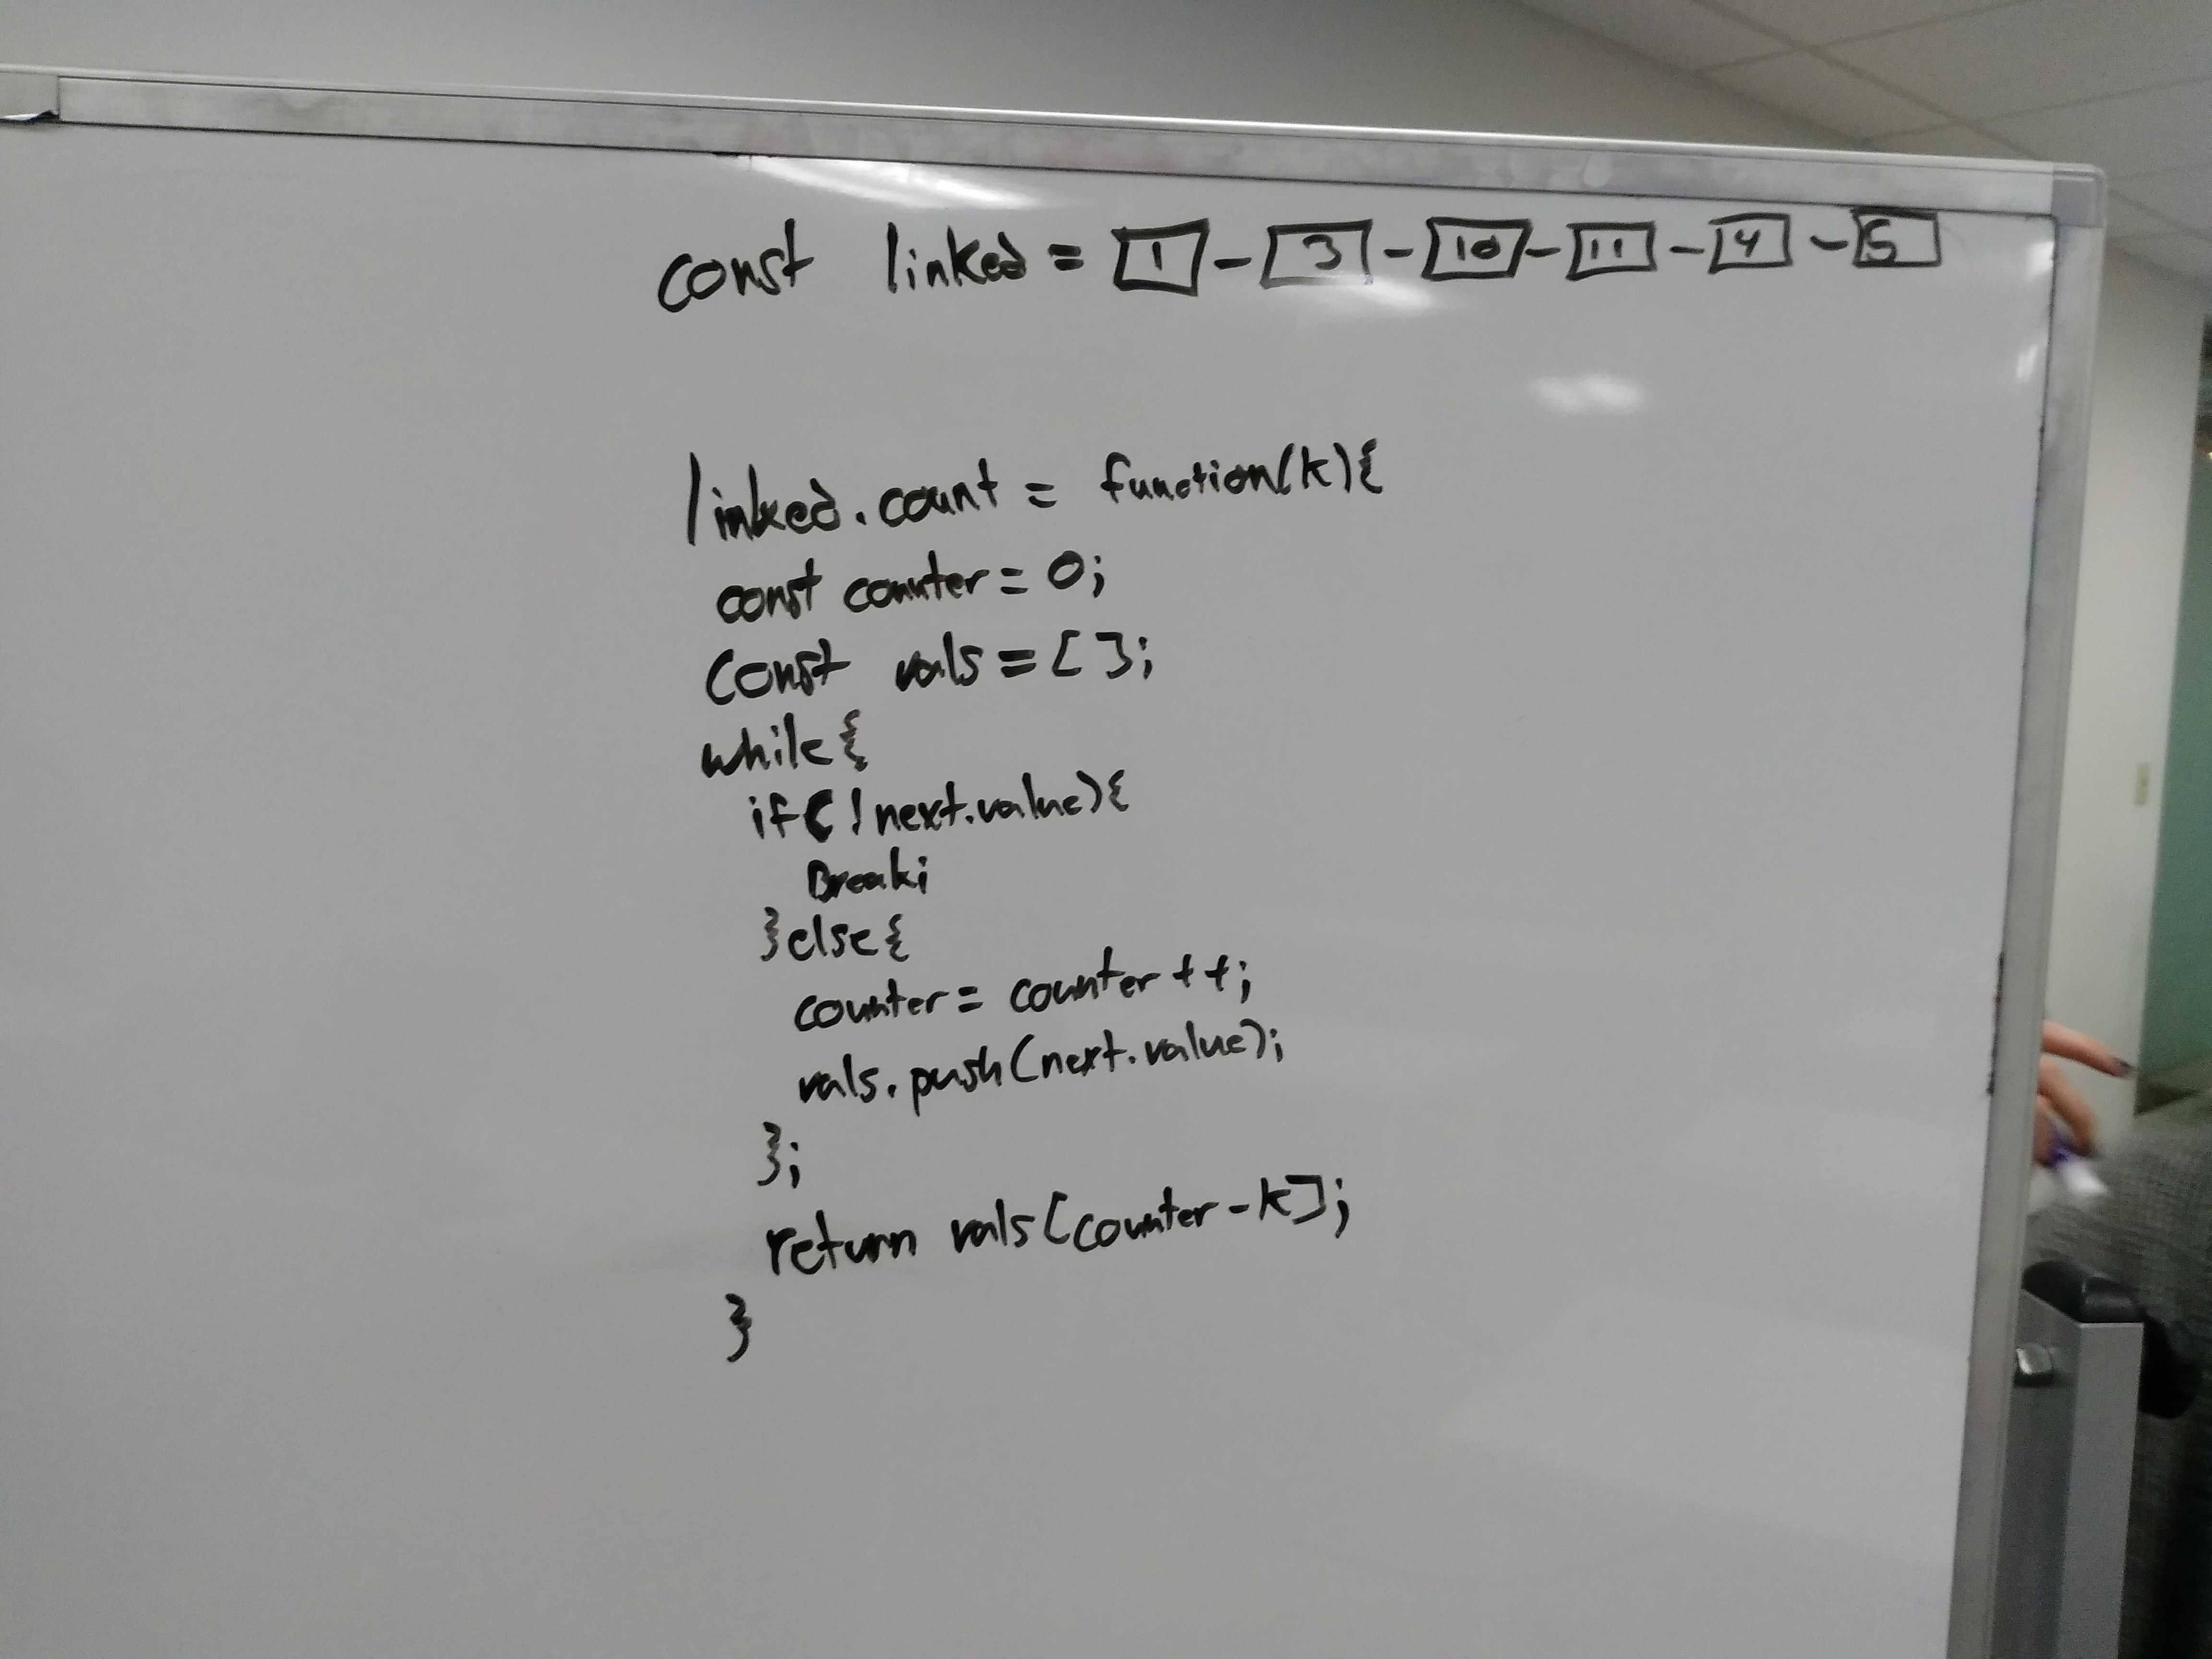 const linked = 1 - 3 - 10 - 11 - 4 - 5
linked.count = function(k){
const counter = 0;
const vals = [];
while{
if(!next.value){
Break;
}else{
counter = counter++;
vals.push(next.value);
};
return vals[counter-k];
}